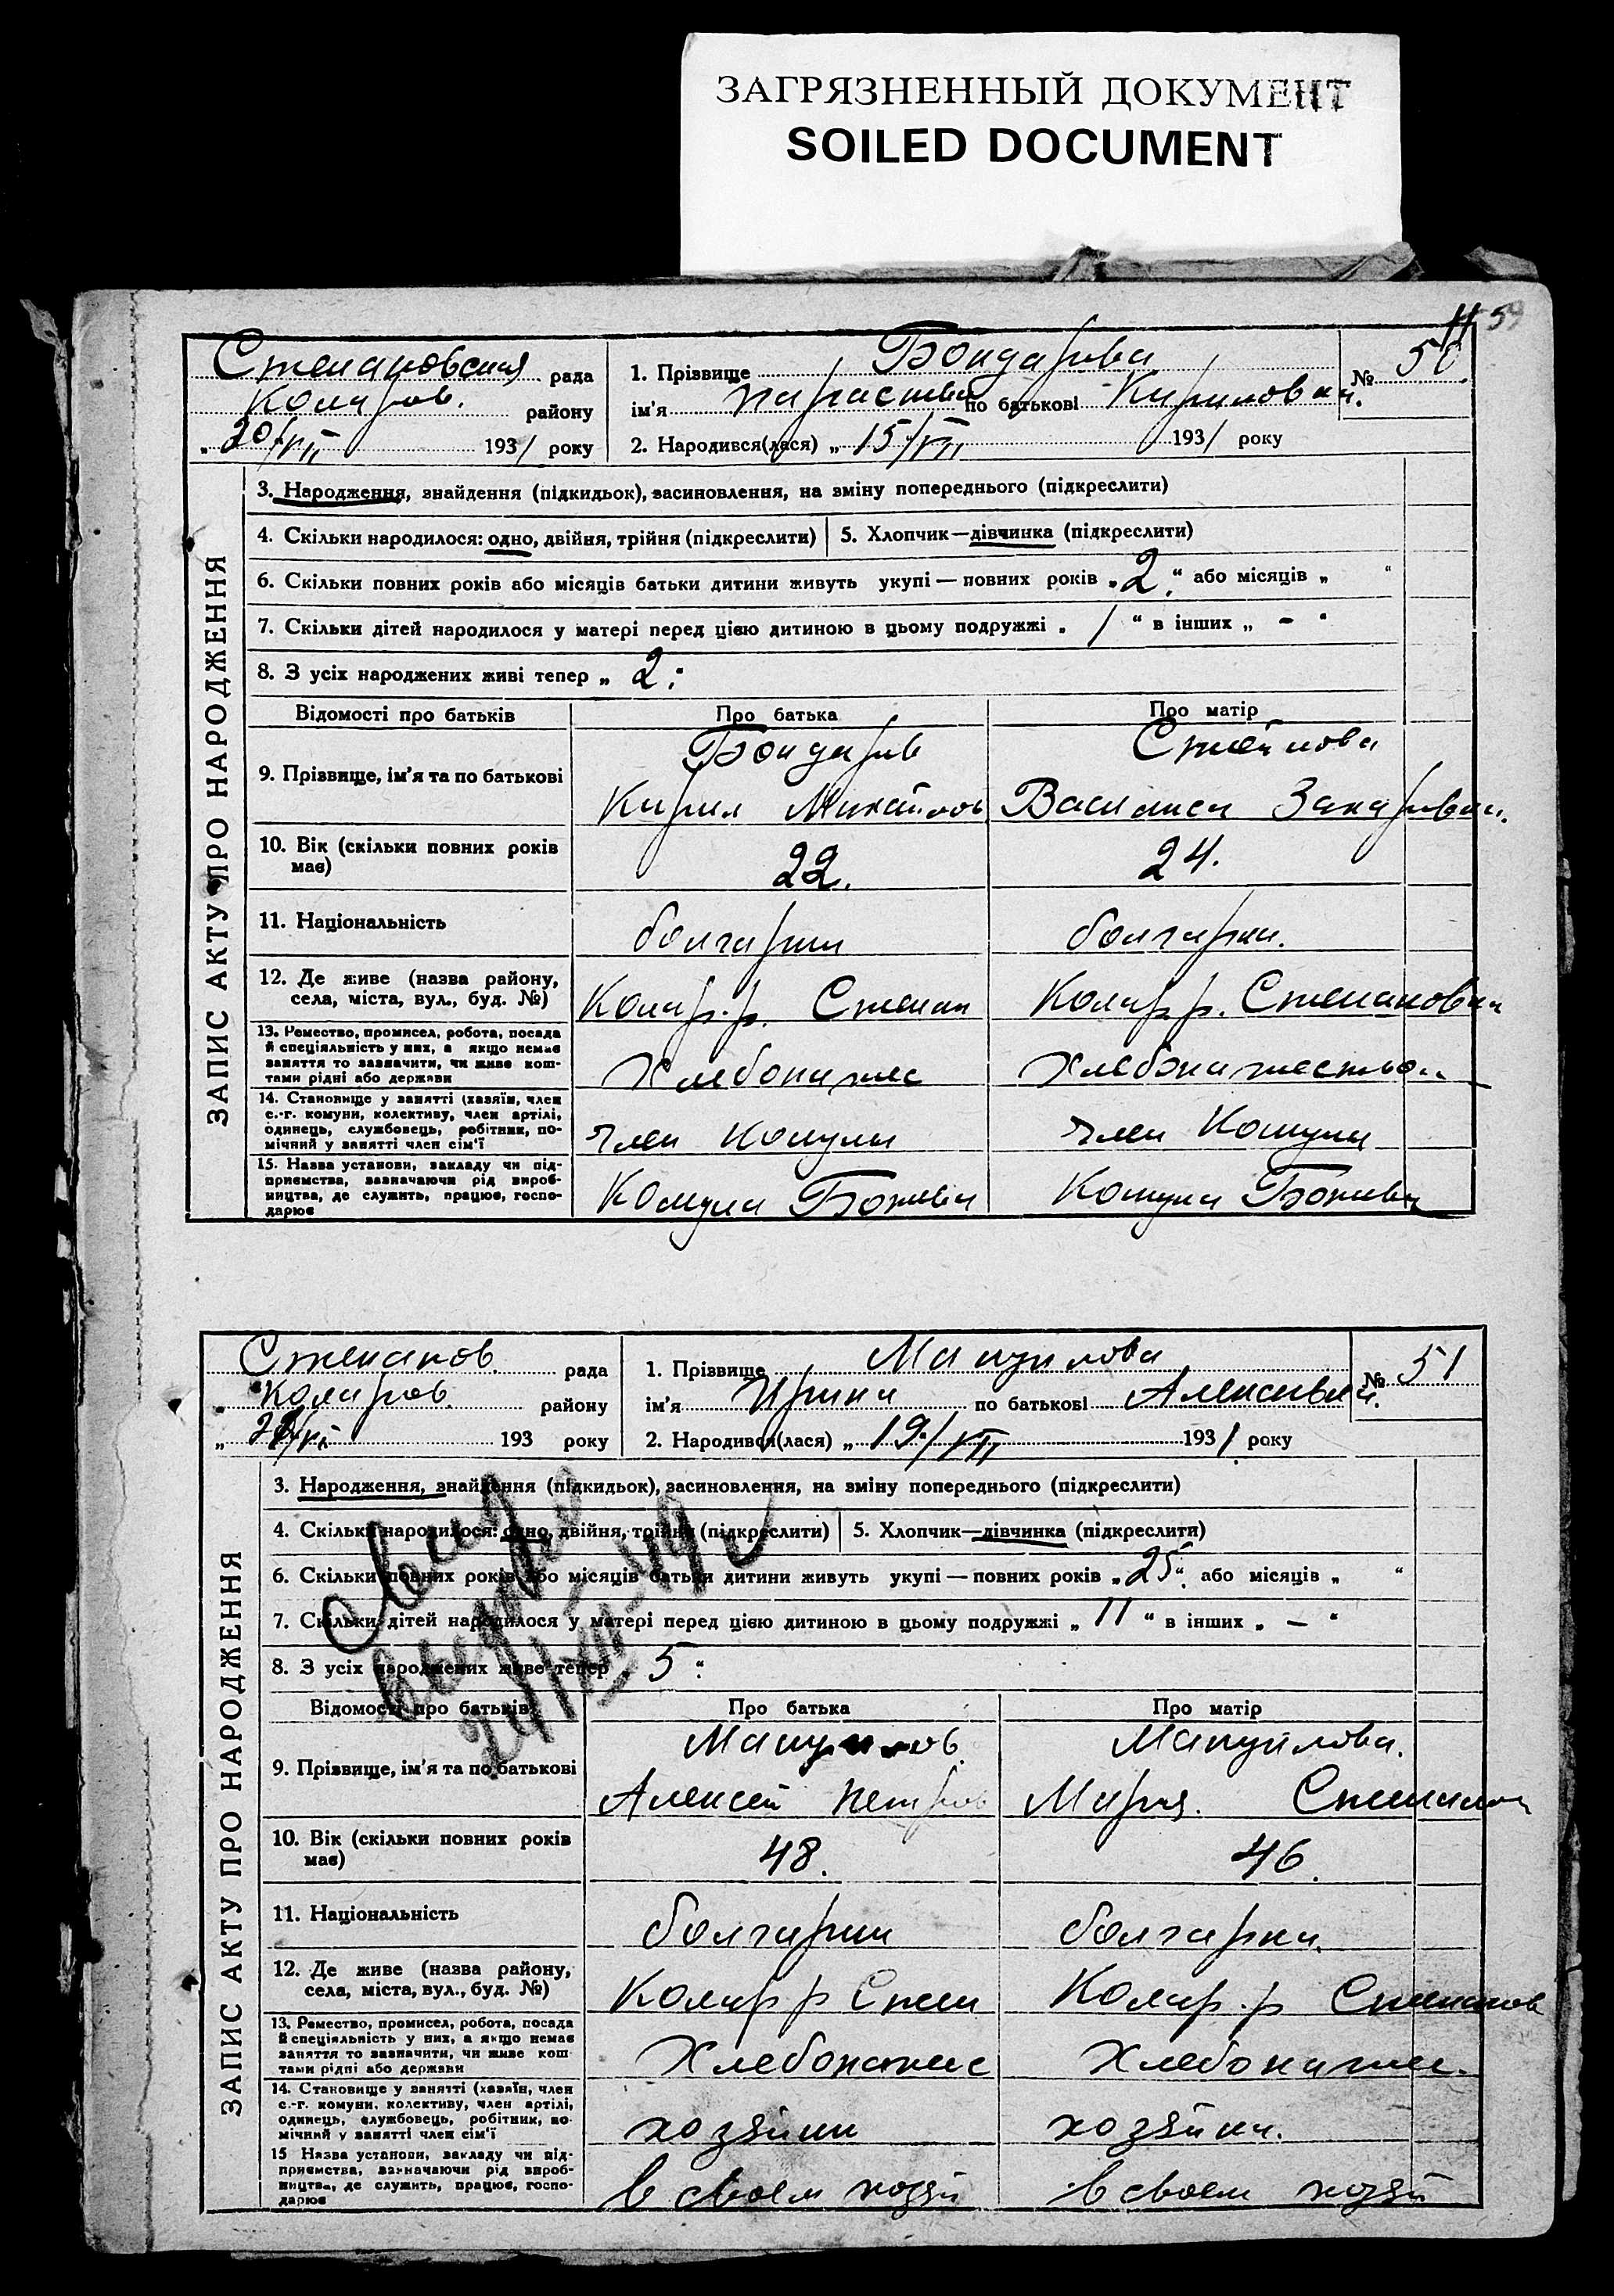 ЗАГРЯЗНЕННЫЙ ДОКУМЕНТ
SOILED DOCUMENT
59
Степановская рада
Коларов. району
„ 20/VII 1931 року
1. Прізвище Бондарова
№ 50.
ім'я Параскева по батькові Кириловна.
2. Народився(лася) „ 15/VII 1931 року
ЗАПИС АКТУ ПРО НАРОДЖЕННЯ
3. Народження, знайдення (підкидьок), засиновлення, на зміну попереднього (підкреслити)
4. Скільки народилося: одно, двійня, трійня (підкреслити) 5. Хлопчик—дівчинка (підкреслити)
6. Скільки повних років або місяців батьки дитини живуть укупі—повних років „ 2 “ або місяців „ “
7. Скільки дітей народилося у матері перед цією дитиною в цьому подружжі „ 1 “ в інших „ - “
8. З усіх народжених живі тепер „ 2 “
Відомості про батьків Про батька Про матір
9. Прізвище, ім'я та по батькові
Бондарев Стойнова
Кирил Михайлов Василиса Захаровна.
10. Вік (скільки повних років має) 22. 24.
11. Національність болгарин болгарка.
12. Де живе (назва району, села, міста, вул., буд. №) Колар. р. Степан Колар р. Степановка
13. Ремество, промисел, робота, посада й спеціяльність у них, а якщо немає заняття то зазначити, чи живе коштами рідні або держави
Хлебопашес Хлебопашество
14. Становище у занятті (хазяїн, член с.-г. комуни, колективу, член артілі, одинець, службовець, робітник, помічний у занятті член сім'ї
член Комуни член Комуни
15. Назва установи, закладу чи підприємства, зазначаючи рід виробництва, де служить, працює, господарює
Комуна Комуна
Степанов. рада
Коларов. району
„ 193 року
1. Прізвище Мануилова
№ 51
ім'я Ирина по батькові Алексевна.
2. Народився(лася) „ 19/VII 1931 року
ЗАПИС АКТУ ПРО НАРОДЖЕННЯ
3. Народження, знайдення (підкидьок), засиновлення, на зміну попереднього (підкреслити)
4. Скільки народилося: одно, двійня, трійня (підкреслити) 5. Хлопчик—дівчинка (підкреслити)
6. Скільки повних років або місяців батьки дитини живуть укупі—повних років „ 25 “ або місяців „ “
7. Скільки дітей народилося у матері перед цією дитиною в цьому подружжі „ 11 “ в інших „ — “
8. З усіх народжених живе тепер „ 5 “
Відомості про батьків Про батька Про матір
9. Прізвище, ім'я та по батькові
Мануилов. Мануйлова.
Алексей Петров Мария. Степанов
10. Вік (скільки повних років має) 48. 46.
11. Національність болгарин болгарка.
12. Де живе (назва району, села, міста, вул., буд. №) Колар р Степ Колар. р Степанов
13. Ремество, промисел, робота, посада й спеціяльність у них, а якщо немає заняття то зазначити, чи живе коштами рідні або держави
Хлебопашес Хлебопаш.
14. Становище у занятті (хазяїн, член с.-г. комуни, колективу, член артілі, одинець, службовець, робітник, помічний у занятті член сім'ї
хозяйин хозяйка.
15 Назва установи, закладу чи підприємства, зазначаючи рід виробництва, де служить, працює, господарює
в своем хозяй в своем хозяй